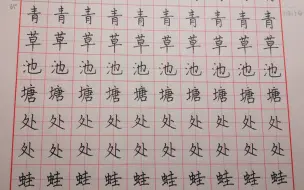 青青青青青青青青青
草草草草草草草草草
池池池池池池池池池
塘塘塘塘塘塘塘塘塘
处处处处处处处处处
处处处处处处处处处
蛙蛙蛙蛙蛙蛙蛙蛙蛙